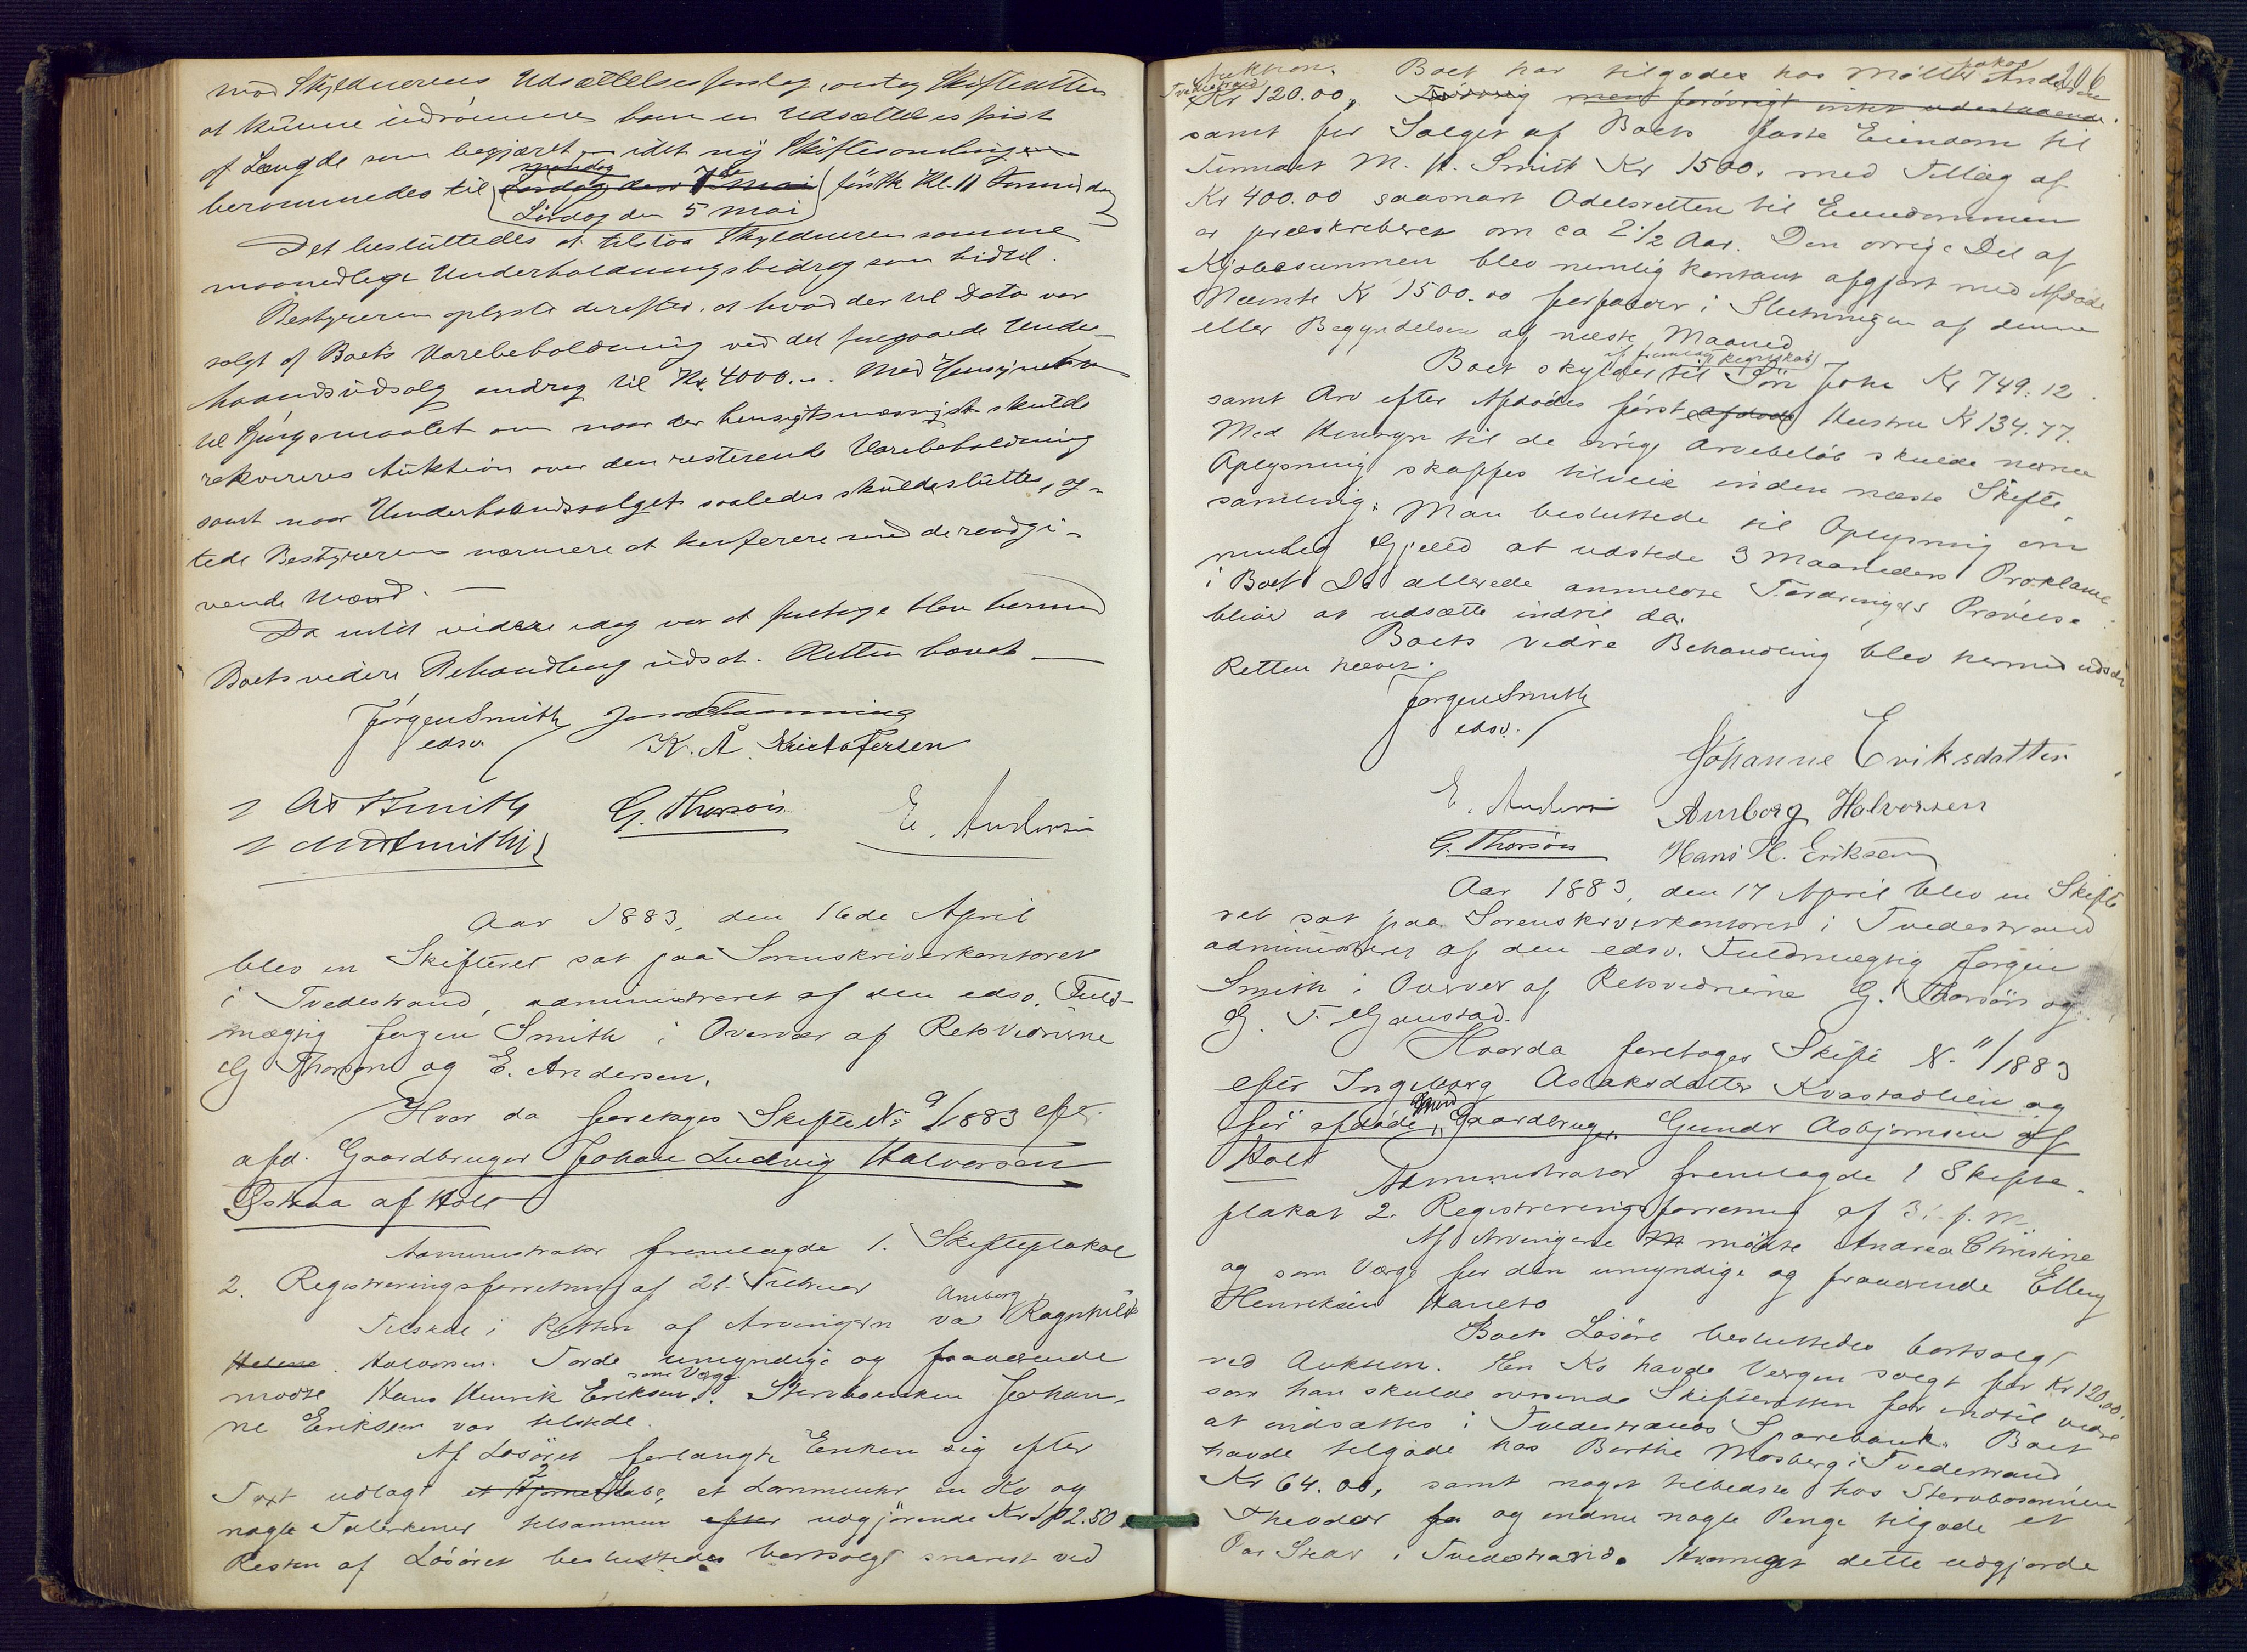 mod Skyldnerens Udsættelsesforslag, antog Skifteretten
at kunne indrømme ham en Udsættelsesfrist
af Længde som begjæret, – idet ny Skiftesamling
berammedes til Lördag den 5 Mai förstk Kl. 11 Formiddag
Mandag 7de
Lördag den 5 Mai
Det besluttedes at tilstaa Skyldneren samme
maanedlige Underholdningsbidrag som hidtil.
Bestyreren oplyste derefter, at hvad der til Dato var
solgt af Boets Varebeholdning ved det foregaaede Under-
haandsudsalg androg til Kr. 4000.–. Med Hensyn
til Spörgsmaalet om naar der hensigtsmæssigst skulde
rekvireres Auktion over den resterende Varebeholdning
samt naar Underhaandssalget saaledes skulde sluttes, ag-
tede Bestyreren nærmere at konferere med de raadgi-
vende Mænd. —
Da intet videre idag var at foretage blev hermed
Boets videre Behandling udsat. Retten hævet —
Jörgen Smith
edsv.
K. A. Kristofersen
G. Thorsön
E. Andersen
Aar 1883, den 16de April
blev en Skifteret sat paa Sorenskriverkontoret
i Tvedestrand, administreret af den edsv. Fuld-
mægtig Jørgen Smith i Overvær af Retsvidnerne
G Thorsøn og E. Andersen.
Hvor da foretoges Skifte No 9/1883 eft.
afd. Gaardbruger Johan Ludvig Halvorsen
Østraa af Holt
Administrator fremlagde 1. Skifteplakat
2. Registreringsforretning af 21. Februar
Amborg
Tilstede i Retten af Arvingern va Ragnhild
Helene. Halvorsen. For de umyndige og fraværende
som Værge
mødte Hans Henrik Eriksen. Stervboenken Johan-
ne Eriksen var tilstede.
Af Løsøret forlangte Enken sig efter
2
Taxt udlagt et Hjørneskabe, et Lommeuhr en Ko og
nogle Tallerkener tilsammen efter udgjørende Kr 92.50.
Resten af Løsøret besluttedes bortsolgt snarest ved
206
Auktion. Boet har tilgodes hos Møller Jakob Andersen
Tvedestrand
Kr 120.00, Forøvrig men forøvrigt intet udestaaende.
samt for Salget af Boets faste Eiendom til
Tømmer M. H. Smith Kr 1500. med Tillæg af
Kr 400.00 saasnart Odelsretten til Eiendommen
er præskriberet om ca 2 1/2 Aar. Den øvrige Del af
Kjøbesummen blev nemlig kontant afgjort med Afdøde
Nævnte Kr 1500.00 forfalder i Slutningen af denne
eller Begyndelsen af næste Maaned
Boet skylder til Søn John Kr 749.12.
samt Arv efter Afdødes først afdøde Hustru Kr 134.77.
Med Hensyn til de øvrige Arvebeløb skulde nærme
Oplysning skaffes tilveie inden næste Skifte-
samling. Man besluttede til Oplysning om
mulig Gjæld at udstede 3 Maaneders Proklama
i Boet. De allerede anmeldte Fordringers Prøvelse
bliver at udsætte indtil da.
Boets vidre Behandling blev hermed udsat
Retten hævet.
Jørgen Smith
edsv.
Johanne Eriksdatter
E. Andersen Amborg Halvorsen
G. Thorsön Hans H. Eriksen
Aar 1883, den 17 April blev en Skifte
ret sat paa Sorenskriverkontoret i Tvedestrand
administreret af den edsv. Fuldmægtig Jørgen
Smith i Overvær af Retsvidnerne G. Thorsön og
G. T. Gaustad.
Hvorda foretoges Skifte N. 11/1883
efter Ingeborg Aslaksdatter Kvastadlien og
Mand
før afdøde Gaardbruger Gunder Asbjørnsen af
Holt
Administrator fremlagde 1 Skifte-
plakat 2. Registreringsforretning af 31. f. M.
Af Arvingerne M mødte Andrea Christine
og som Værge for den umyndige og fraværende Ellen
Henriksen Haneto
Boets Løsøre besluttedes bortsolgt
ved Auktion. En Ko havde Værgen solgt for Kr 120.00.
som han skulde oversende Skifteretten for indtil vidre
at indsættes i Tvedestrands Sparebank. Boet
havde tilgode hos Berthe Mosberg i Tvedestrand
Kr 64.00, samt noget tilbedste hos Stervbosønnen
Theodor fo og endnu nogle Penge tilgode et
Par Steder i Tvedestrand. Hvormeget dette udgjorde